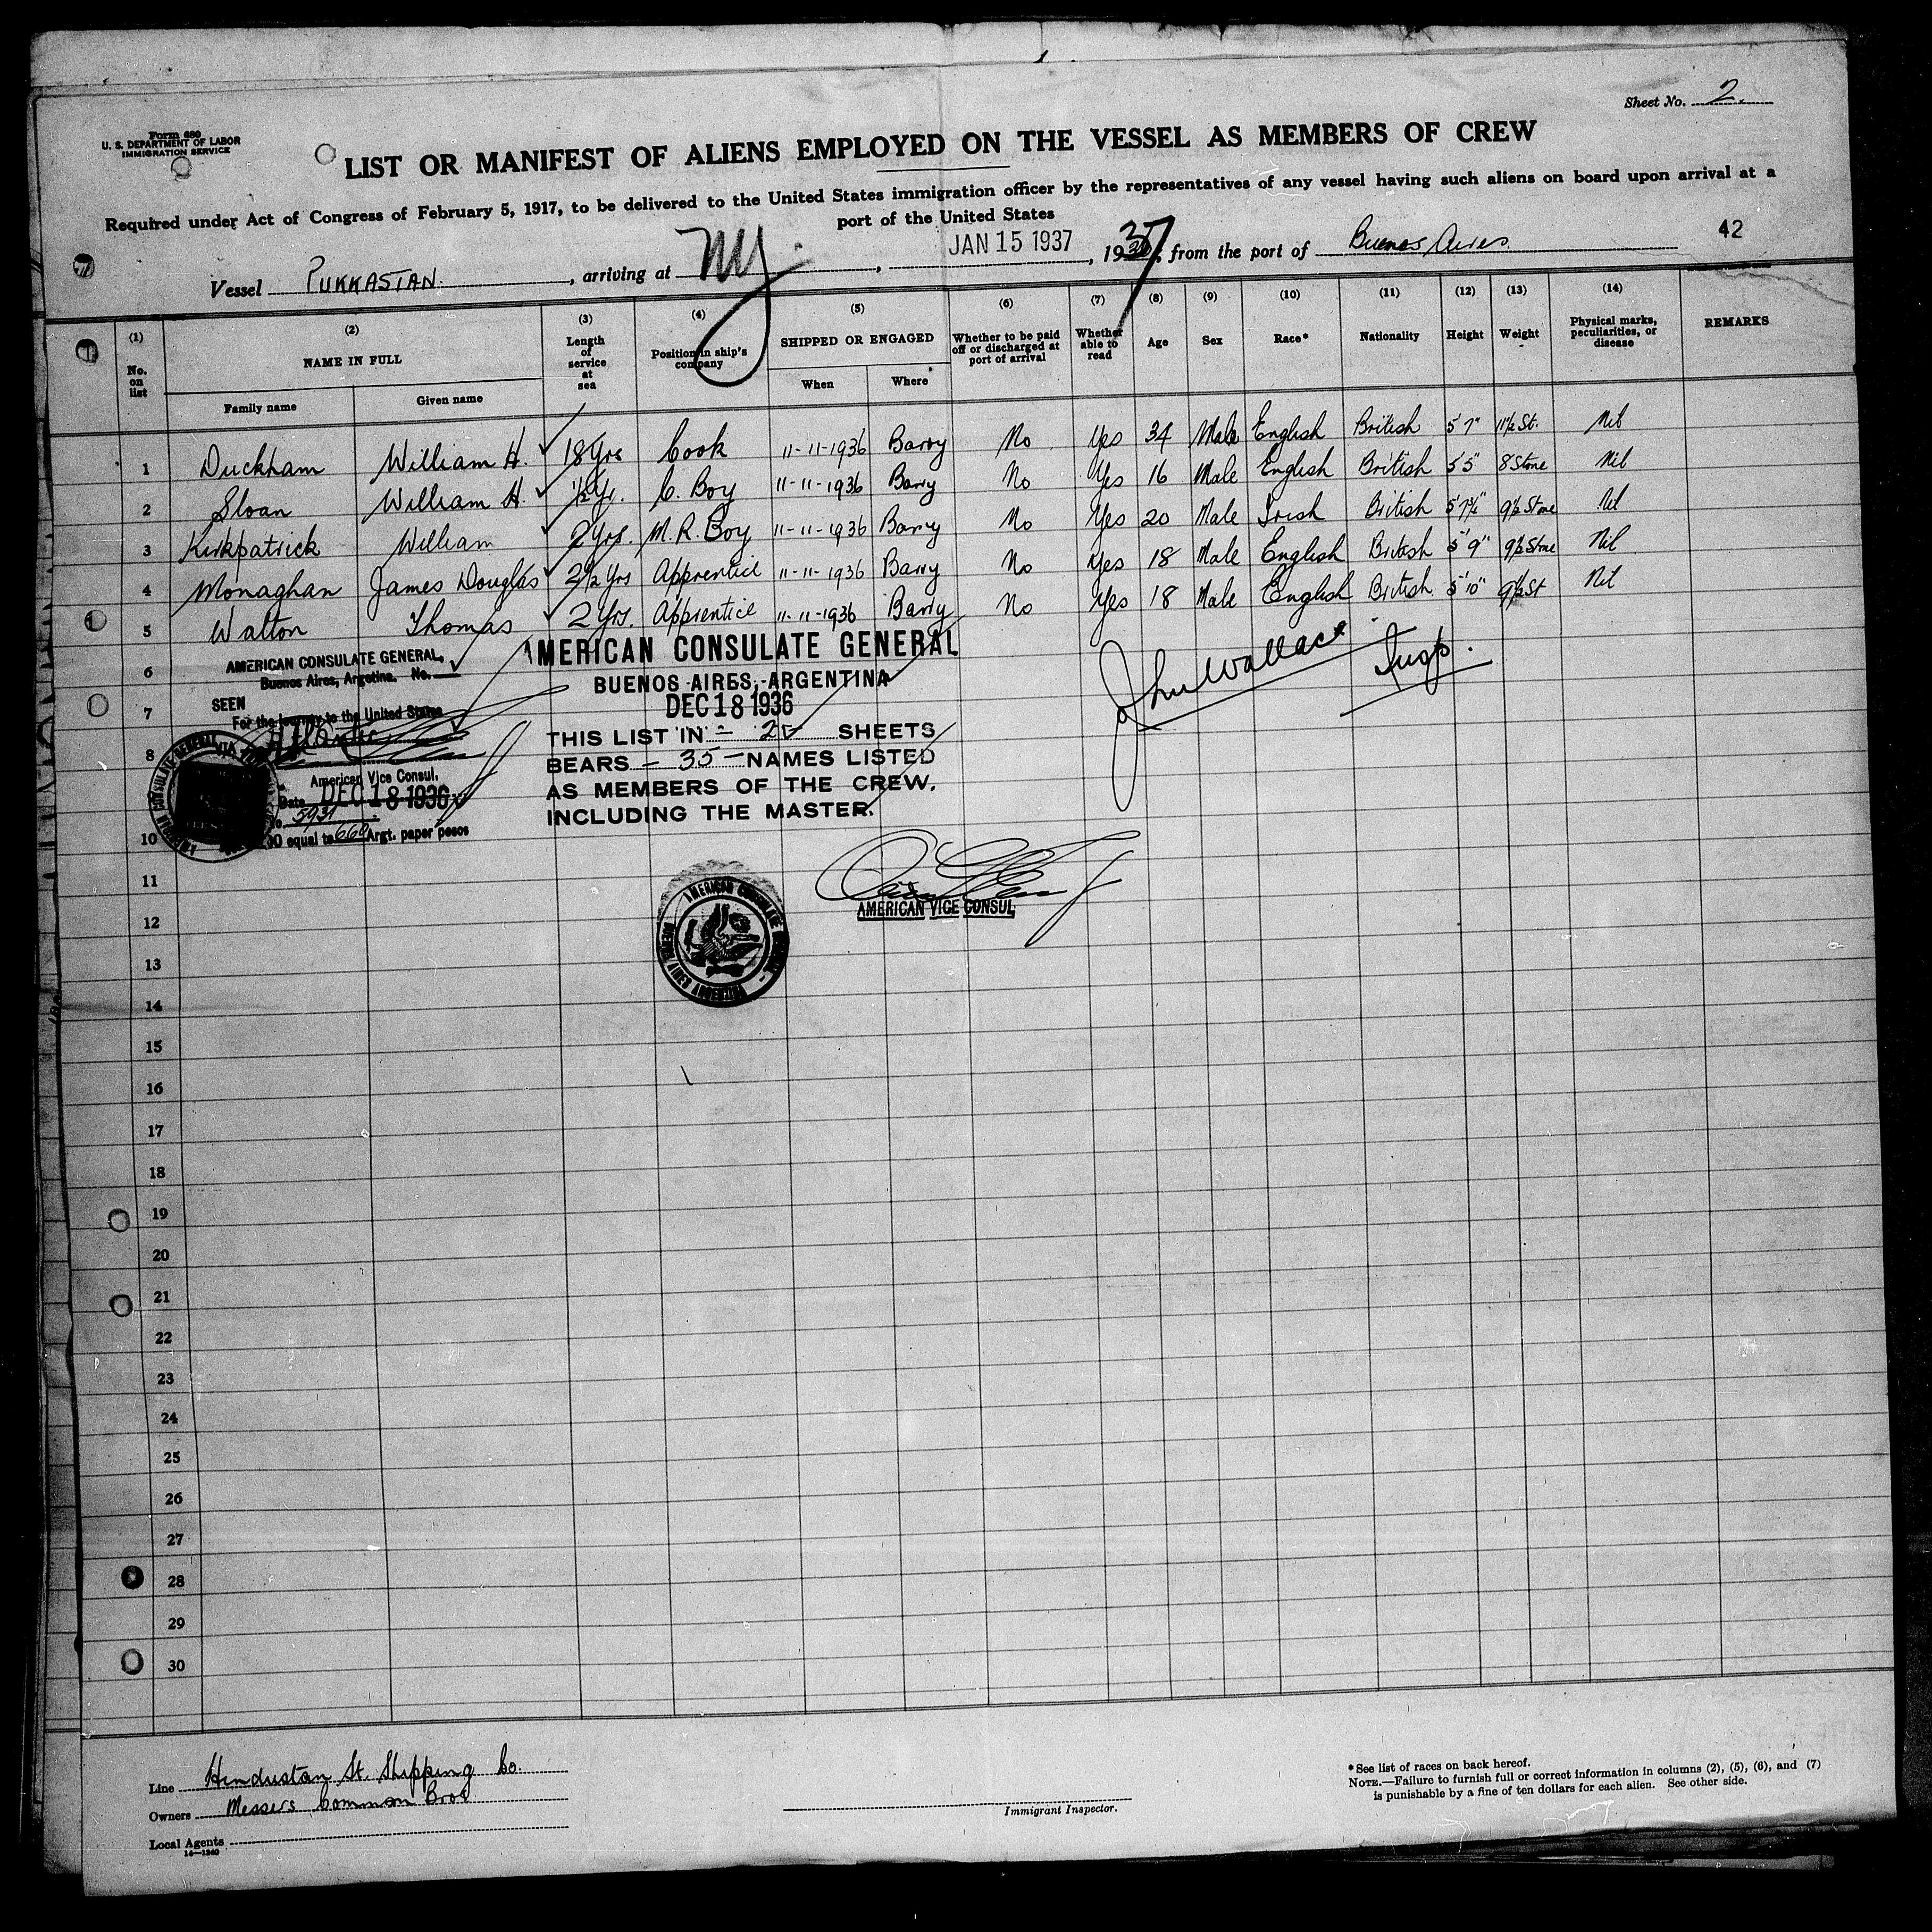 Sheet No. 2.
Form 680
U. S. DEPARTMENT OF LABOR
IMMIGRATION SERVICE
LIST OR MANIFEST OF ALIENS EMPLOYED ON THE VESSEL AS MEMBERS OF CREW
Required under Act of Congress of February 5, 1917, to be delivered to the United States immigration officer by the representatives of any vessel having such aliens on board upon arrival at a
port of the United States
Vessel PUKKASTAN., arriving at NY, JAN 15 1937, 1937, from the port of Buenos Aires. 42
(1) No. on list
(2) NAME IN FULL
Family name Given name
(3) Length of service at sea
(4) Position in ship's company
(5) SHIPPED OR ENGAGED
When Where
(6) Whether to be paid off or discharged at port of arrival
(7) Whether able to read
(8) Age
(9) Sex
(10) Race*
(11) Nationality
(12) Height
(13) Weight
(14) Physical marks, peculiarities, or disease
REMARKS
1 Duckham William H. 18 Yrs Cook 11-11-1936 Barry No Yes 34 Male English British 5'7" 11½ St. Nil
2 Sloan William H. ½ Yr. C. Boy 11-11-1936 Barry No Yes 16 Male English British 5'5" 8 Stone Nil
3 Kirkpatrick William 2 Yrs. M.R. Boy 11-11-1936 Barry No Yes 20 Male Irish British 5'7¼" 9½ Stone Nil
4 Monaghan James Douglas 2½ Yrs Apprentice 11-11-1936 Barry No Yes 18 Male English British 5'9" 9½ Stone Nil
5 Walton Thomas 2 Yrs. Apprentice 11-11-1936 Barry No Yes 18 Male English British 5'10" 9½ St Nil
6
7
8
10
11
12
13
14
15
16
17
18
19
20
21
22
23
24
25
26
27
28
29
30
AMERICAN CONSULATE GENERAL,
Buenos Aires, Argetina. No.
SEEN
For the journey to the United States
VIA
American Vice Consul.
Date DEC 18 1936
No. 5931
equal to 6.60 Argt. paper pesos
AMERICAN CONSULATE GENERAL
BUENOS AIRES, ARGENTINA
DEC 18 1936
THIS LIST IN - 2 SHEETS
BEARS - 35 - NAMES LISTED
AS MEMBERS OF THE CREW.
INCLUDING THE MASTER.
AMERICAN VICE CONSUL
AMERICAN CONSULATE GENERAL
BUENOS AIRES ARGENTINA
John Wallace Insp.
Line Hindustan St. Shipping Co.
Owners Messers Common Bros
Local Agents
14—1240
Immigrant Inspector.
*See list of races on back hereof.
NOTE.—Failure to furnish full or correct information in columns (2), (5), (6), and (7)
is punishable by a fine of ten dollars for each alien. See other side.